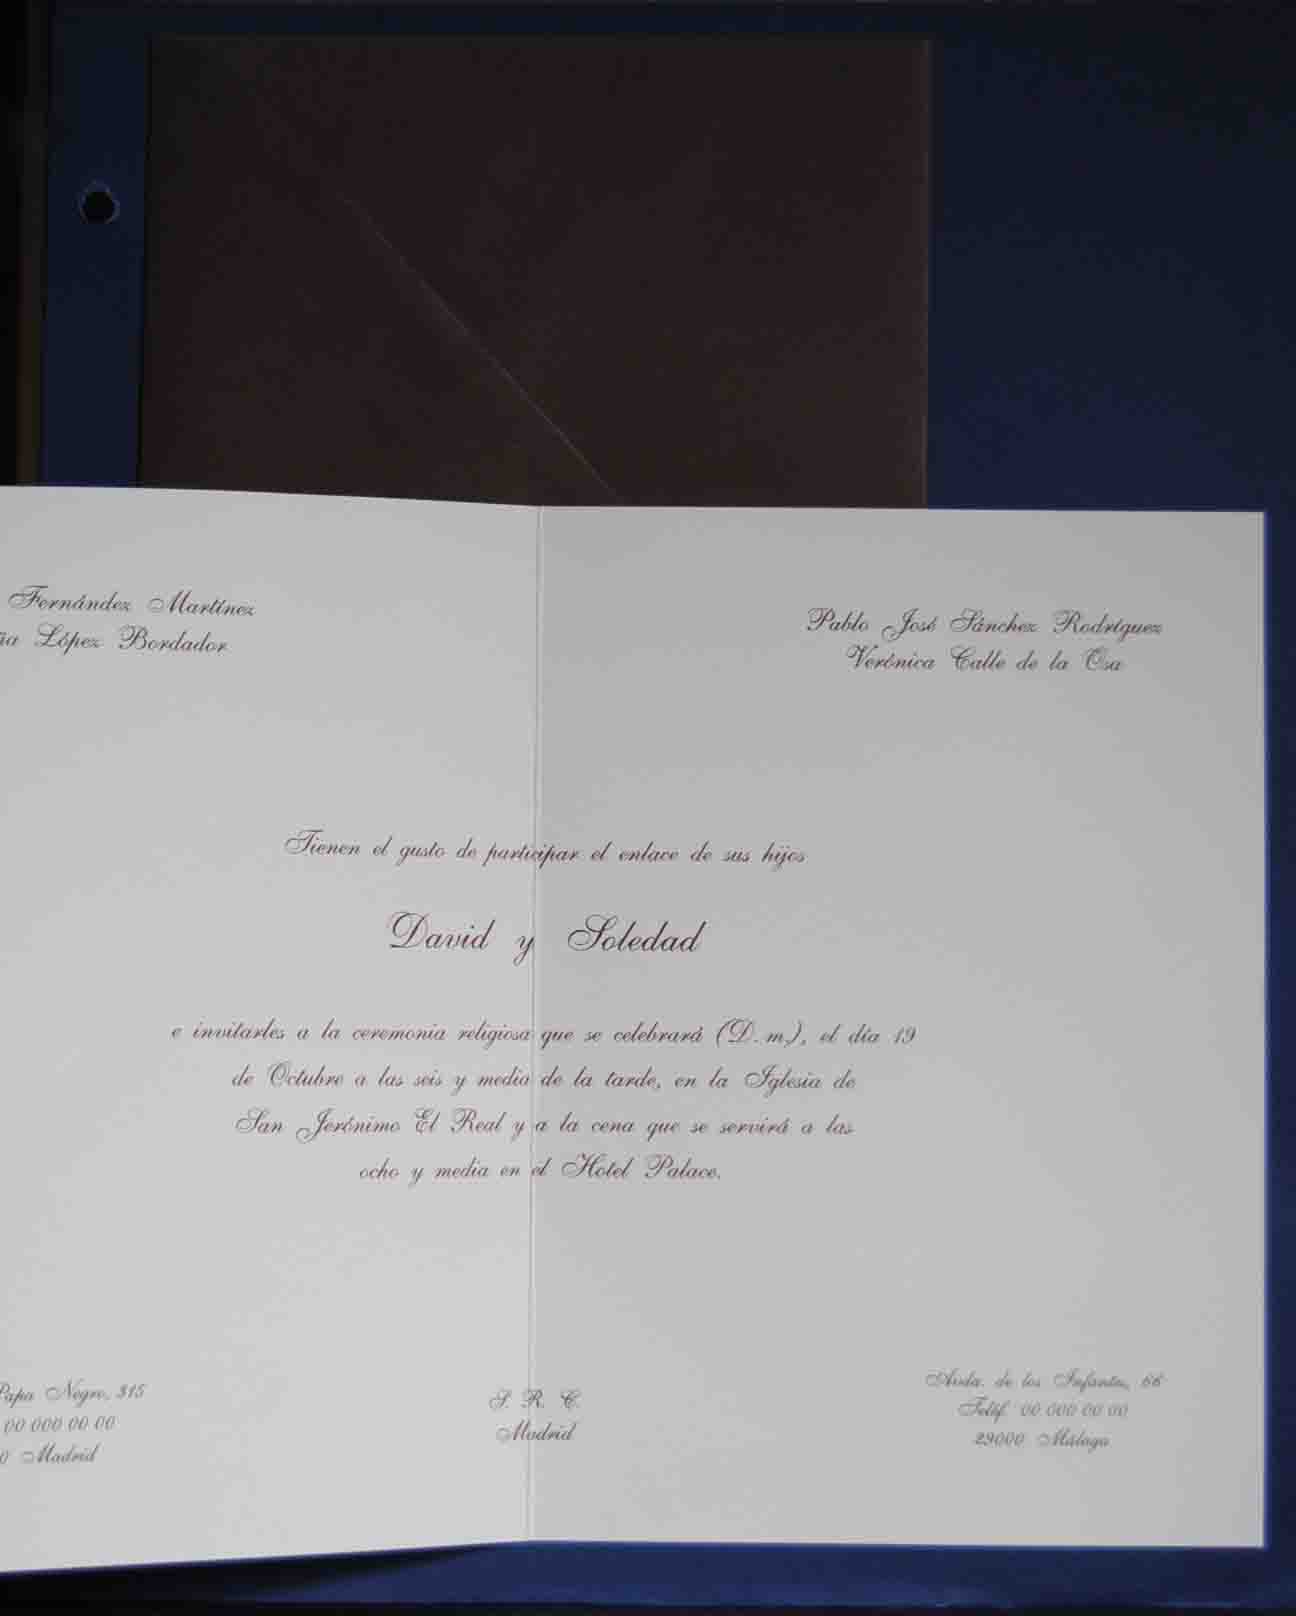 Fernández Martínez
López Bordador
Pablo José Sánchez Rodríguez
Verónica Calle de la Osa
Tienen el gusto de participar el enlace de sus hijos
David y Soledad
e invitarles a la ceremonia religiosa que se celebrará (D. m.), el día 19
de Octubre a las seis y media de la tarde, en la Iglesia de
San Jerónimo El Real y a la cena que se servirá a las
ocho y media en el Hotel Palace.
Papa Negro, 315
00 000 00 00
Madrid
S. R. C.
Madrid
Avda. de los Infantes, 66
Teléf. 00 000 00 00
29000 Málaga